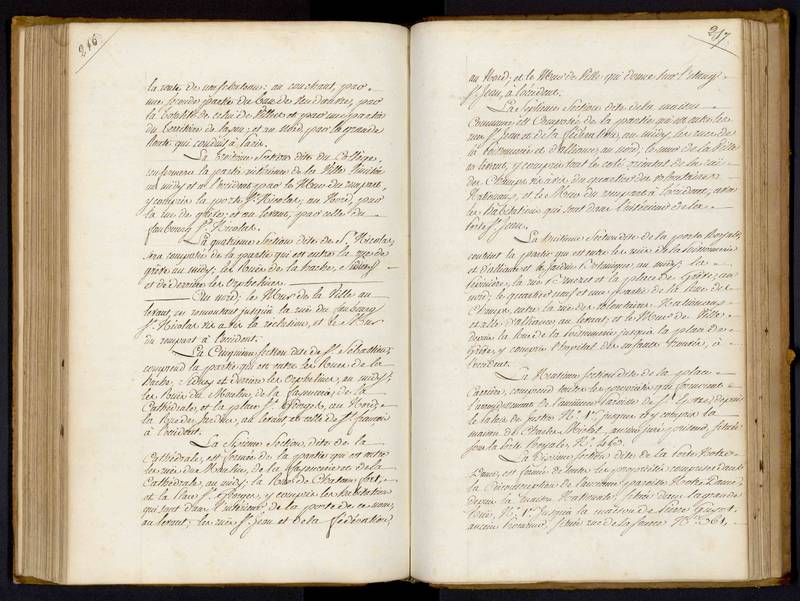 216
la route de neufchateau; au couchant, par
une seconde partie du Ban de
la totalité de celui de Villers et par une partie
du territoire de Laxou; et au Nord, par la grande
Route qui conduit à Paris.
La troisieme Section dite du College,
renfermera la partie intérieure de la Ville limitée
au midy et à l'occident par le Mur du rempart,
y compris la porte St. Nicolas; au Nord, par
la rue de grève; et au levant, par celle du
faubourg St. Nicolas.
La quatrieme Section dite de St. Nicolas,
sera composée de la partie qui est entre la rue de
grève au midy; les Rues de la hache,
et de derriere les Orphelines
Au nord; le Mur de la Ville au
levant, en remontant jusqu'à la rue du faubourg
St. Nicolas vis a vis la et le Mur
du rempart à l'occident.
La Cinquieme Section dite de St. Sébastien,
comprend la partie qui est entre les Rues de la
hache, et derriere les Orphelines, au midy;
les Rues du Moulin, de la fayencerie, de la
Cathédrale, et la place St. Georges, au Nord;
la Rue des au levant et celle de St. françois
à l'occident.
La Sixieme Section, dite de la
Cathédrale, est formée de la partie qui est entre
les rues du Moulin, de la fayencerie et de la
Cathédrale, au midy; la Rue de Chateau fort,
et la Place St. Georges, y compris les habitations
qui sont dans l'intérieur de la porte de ce nom,
au levant; les rues St. Jean et de la fédération,
217
au Nord; et le Mur de Ville qui donne sur l'étang
St. Jean, à l'occident.
La Septieme Section dite de la maison
Commune est Composée de la partie qui est entre les
rues St. Jean et de la fédération, au midy; les rues de
la Poissonnerie et d'alliance, au nord; le mur de la Ville
au levant, y compris tout le coté oriental de la rue
des Champs vis à vis du quartier des volontaires
Nationaux, et le Mur du rempart à l'occident, avec
les habitations qui sont dans l'intérieur de la
porte St. Jean.
La huitieme Section dite de la porte Royale,
contient la partie qui est entre les rues de la Poissonnerie
et d'alliance et le Jardin Botanique, au midy; la
Pépiniere, la rue et la place de Grève, au
nord; le quartier neuf et une partie de la Rue des
Champs, entre la rue des volontaires Nationaux
et celle d'alliance, au levant; et le Mur de Ville
depuis la Rue de la Poissonnerie jusqu'à la place de
Grève, y compris l'hopital des enfants trouvés, à
l'occident.
La Neuvieme Section dite de la place
Carriere, comprend toutes les propriétés qui formoient
l'arrondissement de l'ancienne paroisse de St. Epvre, depuis
le Palais de justice N°. 1er. jusques et y compris la
maison d'Charles ancien juré située
sous la Porte Royale, N°. 463.
La dixieme Section dite de la Porte Notre
Dame, est formée de toutes les propriétés comprises dans
la Circonscription de l'ancienne paroisse Notre Dame,
depuis la maison Nationale, située dans la grande
rue, N°. 1er. jusqu'à la maison de Pierre
ancien rue de la source N°. 361,